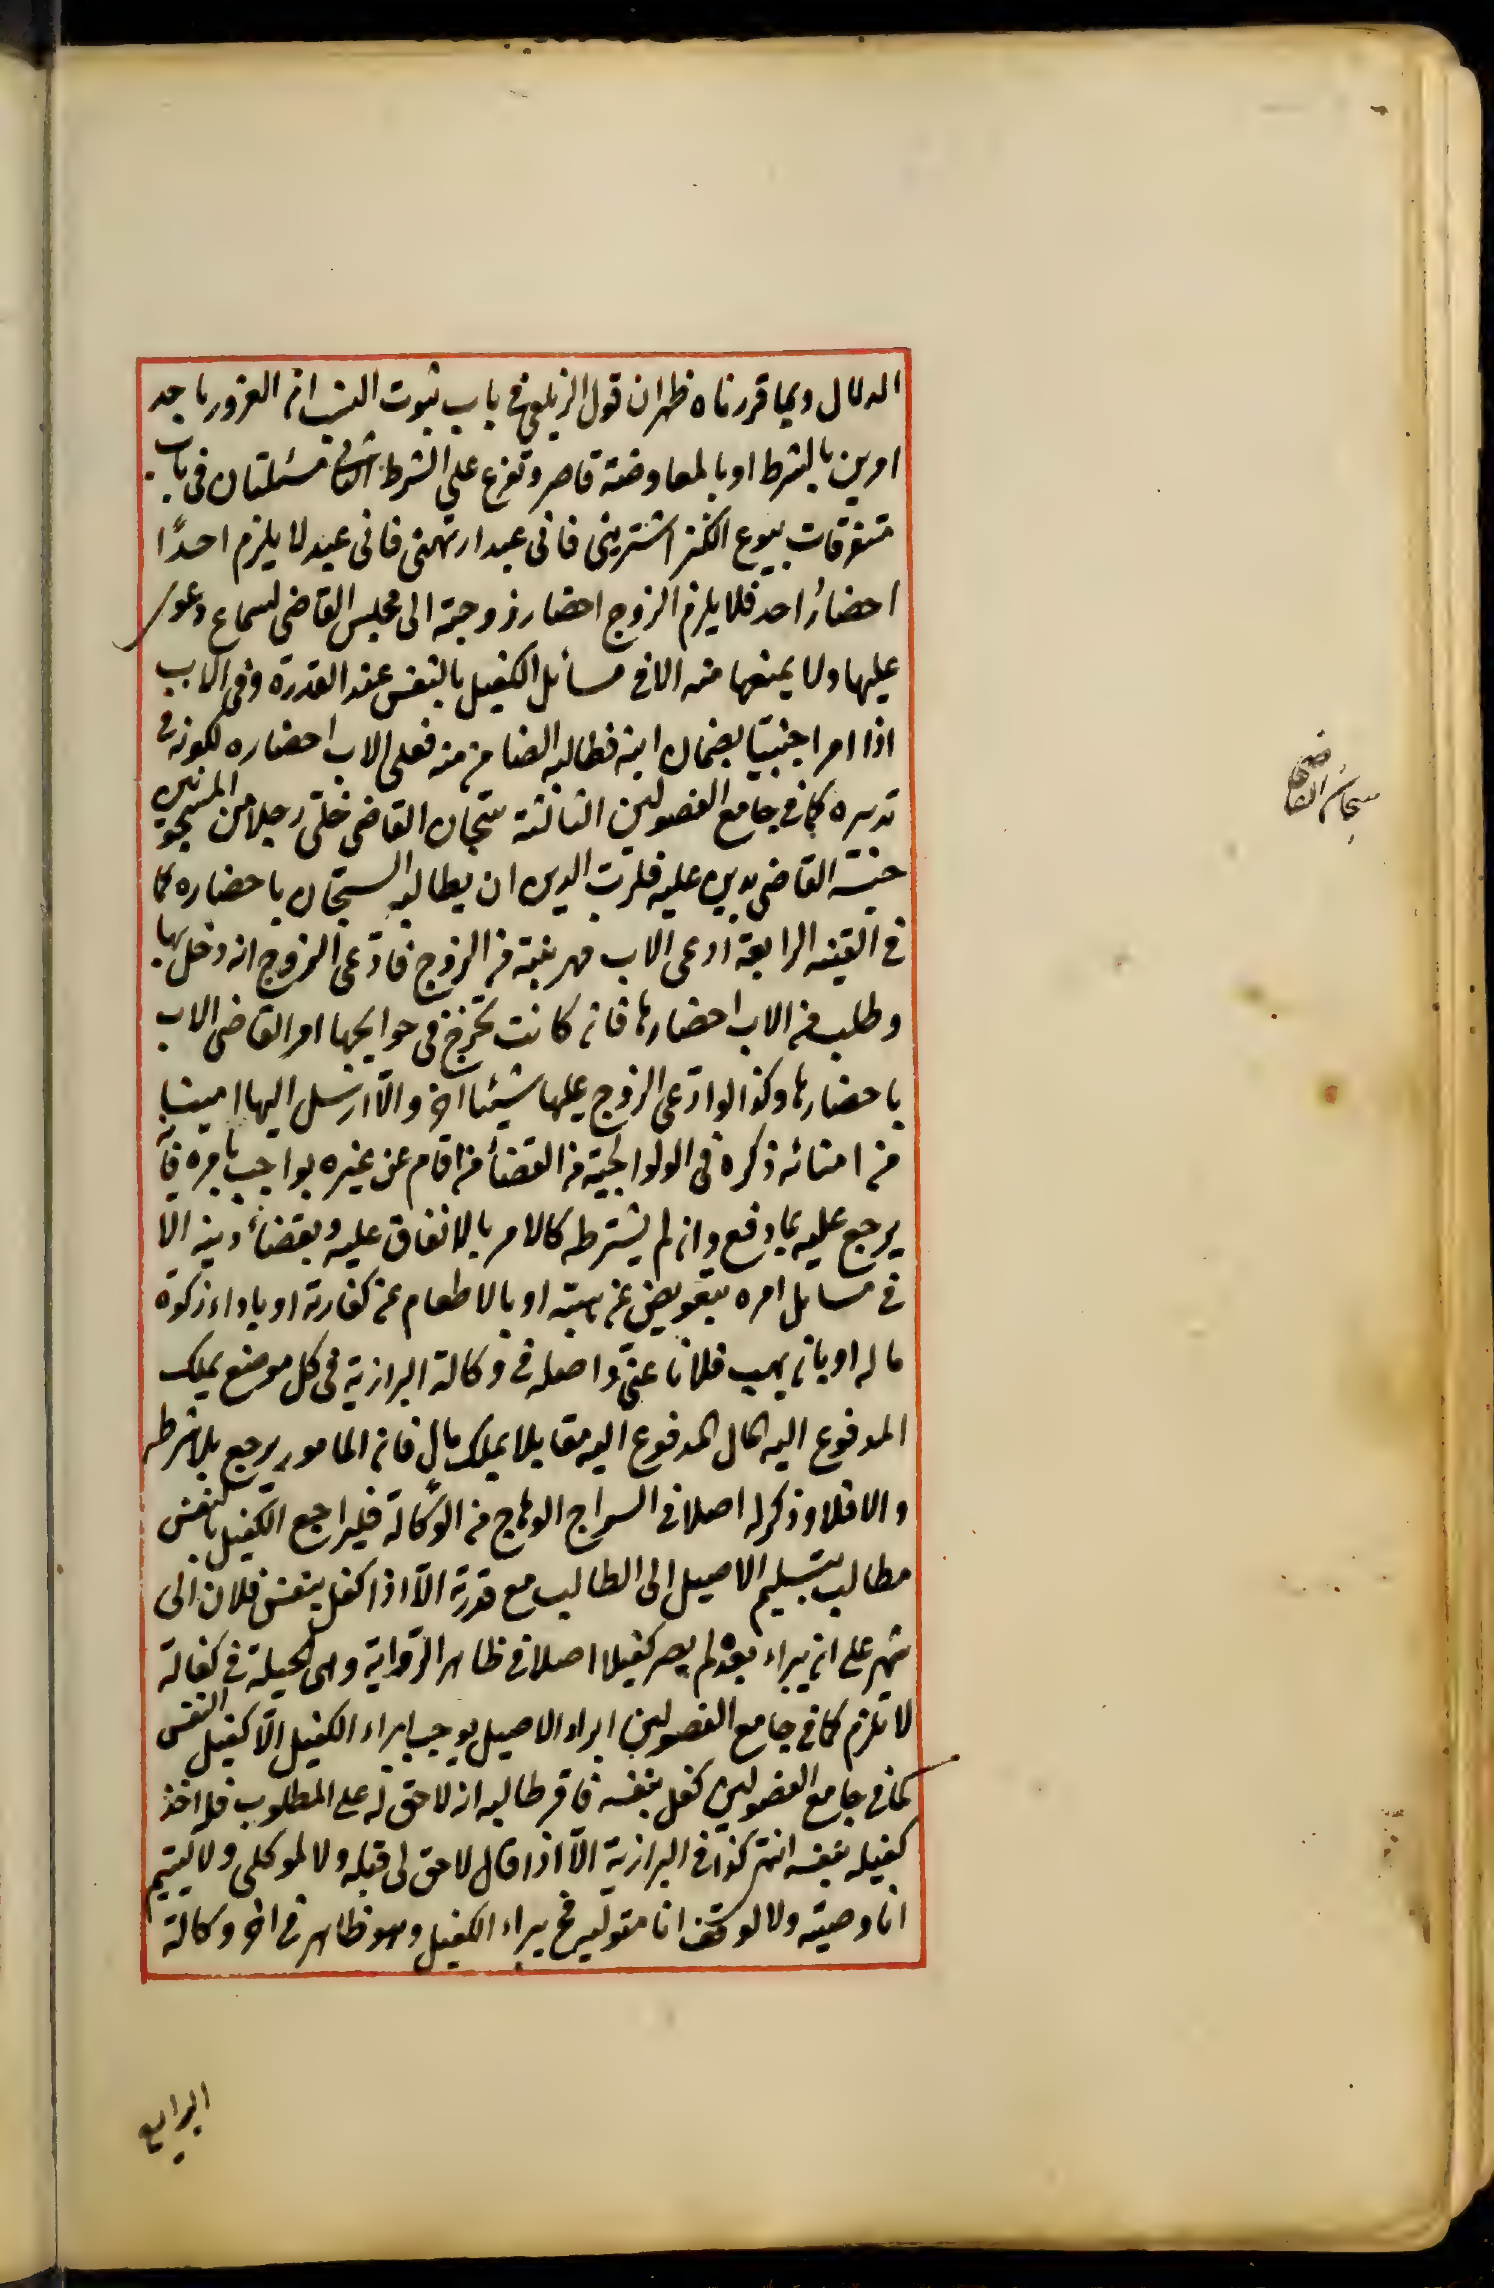 الدلال وبما قررناه ظهر ان قول الزيلعي في باب ثبوت النسب ان الغرور باحد
امرين بالشرط او بالمعاوضة قاصر وتفرع على الشرط الثاني مسئلتان في باب
متفرقات بيوع الكنز اشتريني فاني عبد ارتهني فاني عبد لا يلزم احدًا
احضار احد فلا يلزم الزوج احضار زوجته الى مجلس القاضي لسماع دعوى
عليها ولا يمنعها منه الا في مسائل الكفيل بالنفس عند القدرة وفي الاب
اذا امر اجنبيا بضمان ابنه فطالبه الضامن منه فعلى الاب احضاره لكونه في
تدبيره كما في جامع الفصولين الثالثة سجان القاضي خلى رجلا من المسجونين
حبسه القاضي بدين عليه فلرب الدين ان يطالب السجان باحضاره كما
في القنيه الرابعة ادعى الاب مهر بنته من الزوج فادعى الزوج انه دخل بها
وطلب من الاب احضارها فان كانت تخرج في حوايجها امر القاضي الاب
باحضارها وكذا لو ادعى الزوج عليها شيئا اخر والا ارسل اليها امينا
من امنائه ذكره في الولوالجية من القضاء من اقام عن غيره بواجب بامره فانه
يرجع عليه بما دفع وان لم يشترطه كالامر بالانفاق عليه وبقضاء دينه الا
في مسايل امره بتعويض عن هبته او بالاطعام عن كفارته او باداء زكوة
ماله او بان يهب فلانا عني واصله في وكالة البزازية في كل موضع يملك
المدفوع اليه المال المدفوع اليه مقابلا بملك مال فان المامور يرجع بلا شرط
والا فلا وذكر له اصلا في السراج الوهاج من الوكالة فليراجع الكفيل بالنفس
مطالب بتسليم الاصيل الى الطالب مع قدرته الا اذا كفل بنفس فلان الى
شهر على ان يبراء بعده لم يصر كفيلا اصلا في ظاهر الرواية وهي الحيلة في كفالة
لا تلزم كما في جامع الفصولين ابراء الاصيل يوجب ابراء الكفيل الا كفيل النفس
كما في جامع الفصولين كفل بنفسه فاقر طالبه انه لا حق له على المطلوب فله اخذ
كفيله بنفسه انتهى كذا في البزازية الا اذا قال لا حق لي قبله ولا لموكلي ولا ليتيم
انا وصيه ولا لوقف انا متوليه فح يبراء الكفيل وهو ظاهر في اخر وكالة
سجان القاضي
البدايع